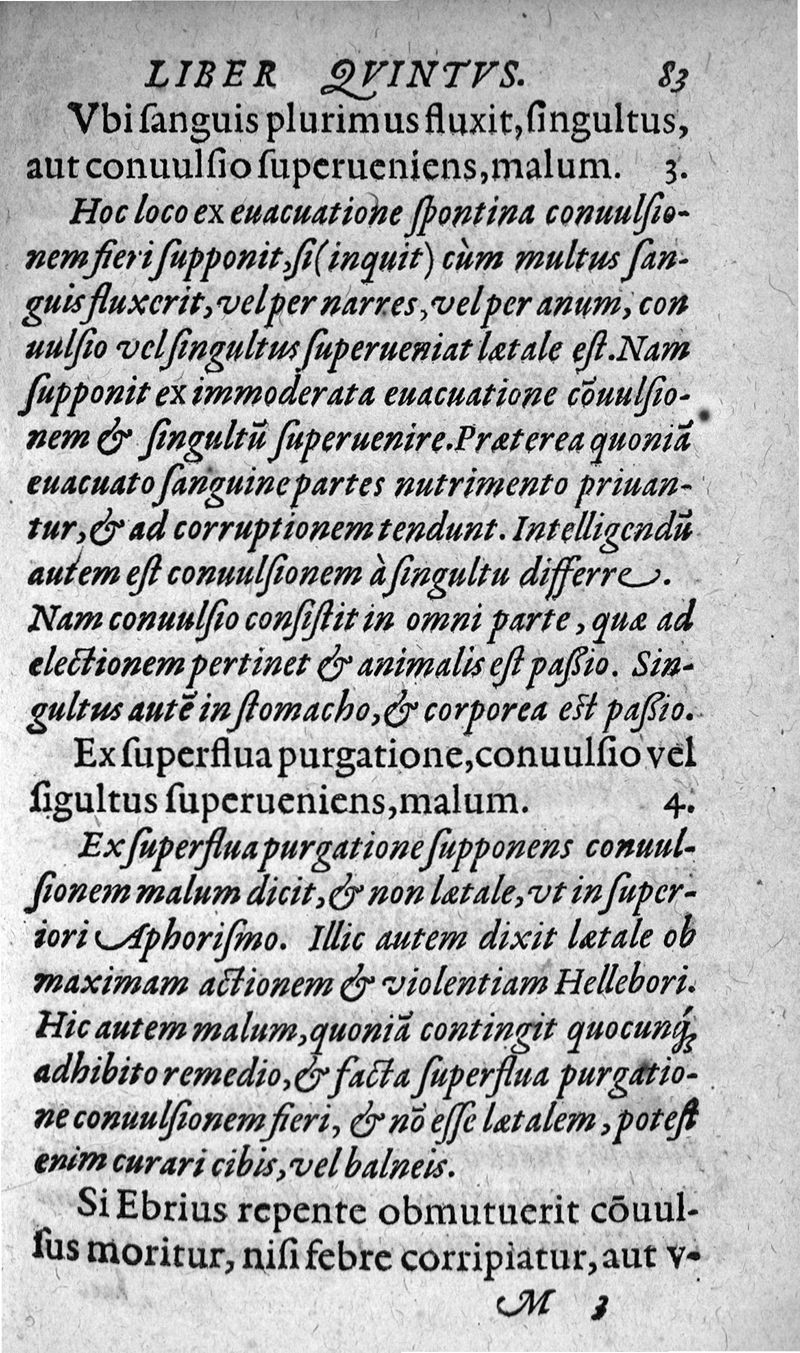 LIBER QVINTVS. 83
Vbi ſanguis plurimus fluxit, ſingultus,
aut conuulſio ſuperueniens, malum. 3.
Hoc loco ex euacuatione ſpontina conuulſio-
nem fieri ſupponit, ſi (inquit) cùm multus ſan-
guis fluxerit, vel per narres, vel per anum, con
uulſio vel ſingultus ſuperueniat lætale eſt. Nam
ſupponit ex immoderata euacuatione cōuulſio-
nem & ſingultū ſuperuenire. Præterea quoniā
euacuato ſanguine partes nutrimento priuan-
tur, & ad corruptionem tendunt. Intelligendū
autem eſt conuulſionem à ſingultu differre.
Nam conuulſio conſiſtit in omni parte, quæ ad
electionem pertinet & animalis eſt paſsio. Sin-
gultus autē in ſtomacho, & corporea eſt paſsio.
Ex ſuperflua purgatione, conuulſio vel
ſigultus ſuperueniens, malum. 4.
Ex ſuperflua purgatione ſupponens conuul-
ſionem malum dicit, & non lætale, vt in ſuper-
iori Aphoriſmo. Illic autem dixit lætale ob
maximam actionem & violentiam Hellebori.
Hic autem malum, quoniā contingit quocunq́;
adhibito remedio, & facta ſuperflua purgatio-
ne conuulſionem fieri, & nō eſſe lætalem, poteſt
enim curari cibis, vel balneis.
Si Ebrius repente obmutuerit cōuul-
ſus moritur, niſi febre corripiatur, aut v-
M 3